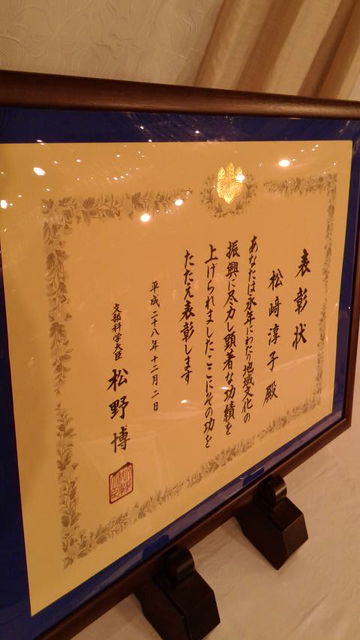 表彰状
松﨑淳子殿
あなたは永年にわたり地域文化の
振興に尽力し顕著な功績を
上げられましたここにその功を
たたえ表彰します
平成二十八年十二月二日
文部科学大臣 松野博一